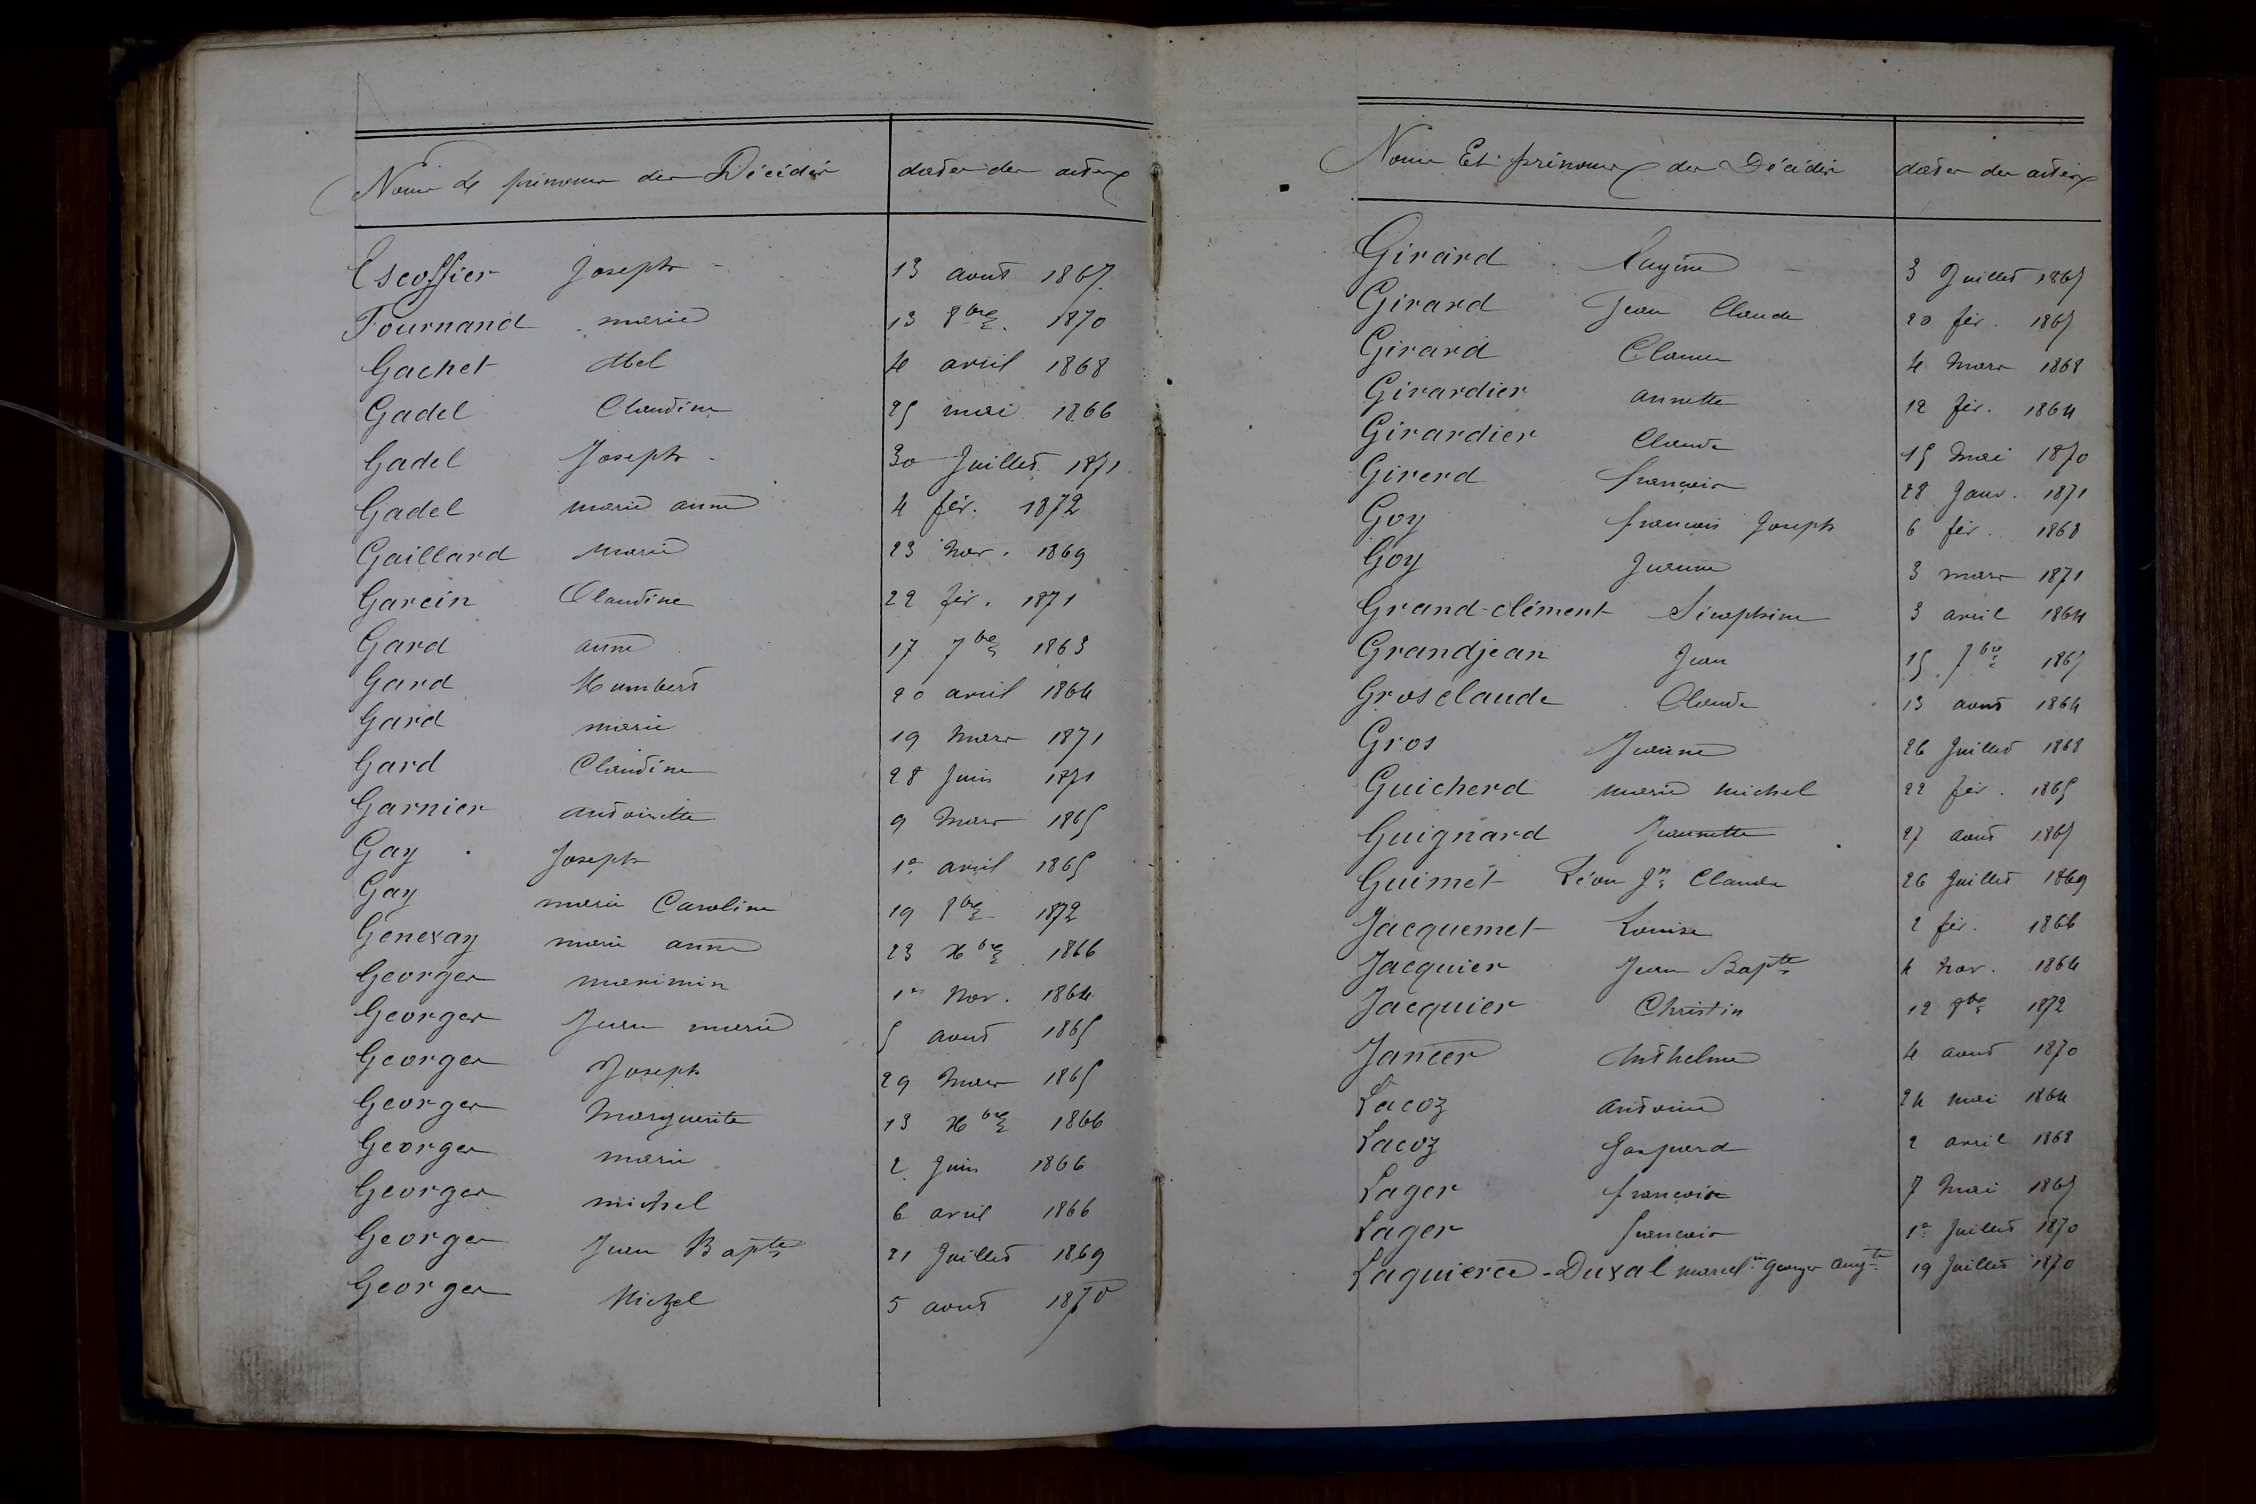 Noms et prénoms des Décédés dates des actes
Escoffier Joseph 13 aout 1867
Fournand marie 13 8bre 1870
Gachet Abel 4 avril 1868
Gadel Claudine 25 mai 1866
Gadel Joseph 30 Juillet 1871
Gadel marie anne 4 fév. 1872
Gaillard Marie 23 Nov. 1869
Garcin Claudine 22 fév. 1871
Gard anne 17 7bre 1863
Gard Humbert 20 avril 1864
Gard marie 19 Mars 1871
Gard Claudine 28 Juin 1871
Garnier antoinette 9 Mars 1865
Gay Joseph 1er avril 1865
Gay marie Caroline 19 8bre 1872
Genevay marie anne 23 Xbre 1866
Georges maximin 1er Nov. 1864
Georges Jean marie 5 aout 1865
Georges Joseph 29 Mars 1865
Georges Marguerite 13 Xbre 1866
Georges marie 2 Juin 1866
Georges michel 6 avril 1866
Georges Jean Bapte 21 Juillet 1869
Georges Michel 5 aout 1870
Noms Et prénoms des Décédés dates des actes
Girard 3 Juillet 1867
Girard Jean Claude 20 fév. 1867
Girard 4 Mars 1868
Girardier annette 12 fév. 1864
Girardier Claude 15 Mai 1870
Girerd francois 28 Janv. 1871
Goy francois Joseph 6 fév. 1868
Goy Jeanne 3 mars 1871
Grand-clément Séraphine 3 avril 1864
Grandjean Jean 15 7bre 1867
Grosclaude Claude 13 aout 1864
Gros Jeanne 26 Juillet 1868
Guicherd marie michel 22 fév. 1865
Guignard Jeannette 27 aout 1867
Guimet Léon Jn Claude 26 Juillet 1869
Jacquemet Louise 2 fév. 1866
Jacquier Jean Bapte 4 Nov. 1864
Jacquier Christin 12 9bre 1872
Janier Anthelme 4 aout 1870
Lacoz antoine 24 mai 1864
Lacoz Gaspard 2 avril 1868
Lager francoise 7 Mai 1867
Lager francois 1er Juillet 1870
Laquierce-Duval marcelin Georges Augte 19 Juillet 1870